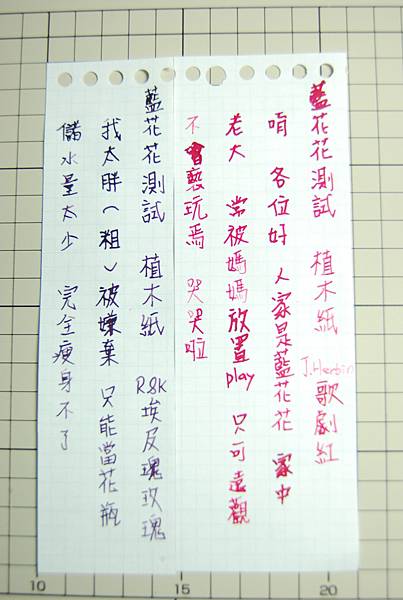 藍花花測試 植木紙 J.Herbin歌劇紅
唷 各位好 人家是藍花花 家中
老大 常被媽媽放置play 只可遠觀
不褻玩焉 哭哭啦
藍花花測試 植木紙 R&K埃及瑰玫瑰
我太胖(粗)被嫌棄 只能當花瓶
儲水量太少 完全瘦身不了
10 15 20